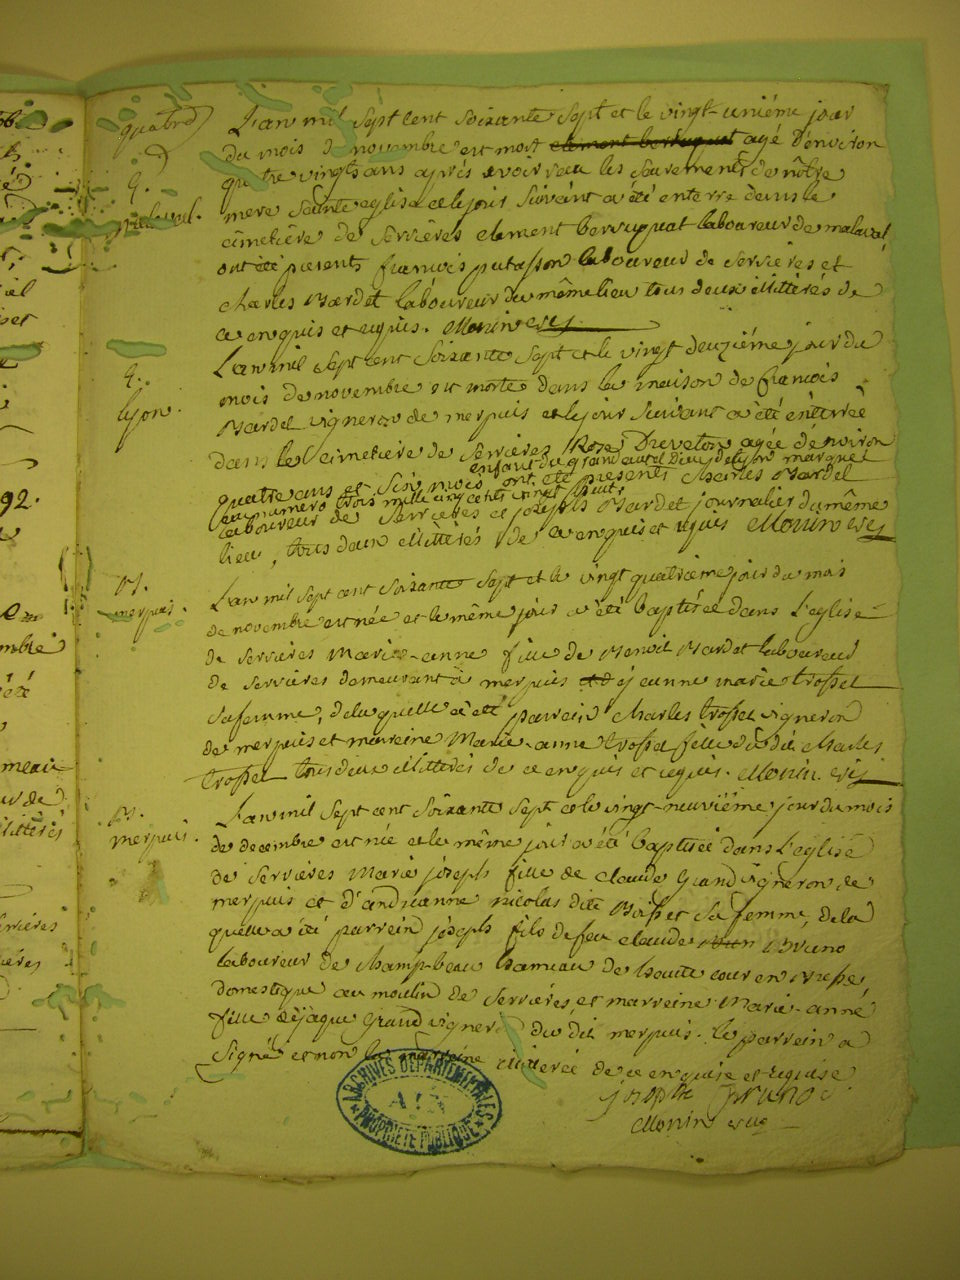 L'an mil sept cent soixante sept et le vingt-unième jour
du mois d novembre est mort clement berruquat agé d'environ
quatre vingts ans après avoir reçu les sacrements de nôtre
mere sainte eglise et le jour suivant a été enterré dans le
cimetière de serrières clement berruquat laboureur de malaval,
ont été presents françois putasson laboureur de serrières et
charles Mardet laboureur du même lieu tous deux illittérés de
ce enquis et requis. Monin curé
4.
malaval.
L'an mil sept cent soixante sept et le vingt deuxième jour du
mois de novembre est morte dans la maison de françois
Mardel vigneron de merpuis et le jour suivant a été enterrée
dans le cimetiere de serrieres Rose Dreveton agée d'environ
enfant du grand autel Dieu de lyon marqué
quatre ans et six mois ont été presents Charles Mardel
au numero trois mille cinq cents
laboureur de serrieres et joseph Mardet journalier du même
lieu, tous deux illittérés de ce enquis et requis Monin curé
4.
lyon.
L'an mil sept cent soixante sept et le vingt quatrieme jour du mois
de novembre est née et le même jour a été baptisée dans l'eglise
de serrieres Marie-anne fille de Benoit Mardet laboureur
de serrieres demeurant à merpuis et d jeanne marie trosset
sa femme, de laquelle a été parrein Charles trosset vigneron
de merpuis et mareine Marie-anne trosset fille du dit Charles
trosset tous deux illittérés de ce enquis et requis. Monin curé
merpuis.
L'an mil sept cent soixante sept et le vingt-neuvième jour du mois
de decembre est née et le même jour a été baptisée dans l'eglise
de serrieres Marie joseph fille de claude Grand vigneron de
merpuis et d'andreanne nicolas dite sa femme, de la
quelle a été parrein joseph fils de feu claude Bruno
laboureur de champ-beau hameau de haute cour en Bresse
domestique au moulin de serrières, et marreine Marie-anne
fille de jaque Grand vigneron du dit merpuis. le parrein a
signé et non la marreine illiterée de ce enquise et requise
merpuis.
joseph bruno
Monin curé
ARCHIVES DÉPARTEMENTALES
AIN
PROPRIÉTÉ PUBLIQUE
92.